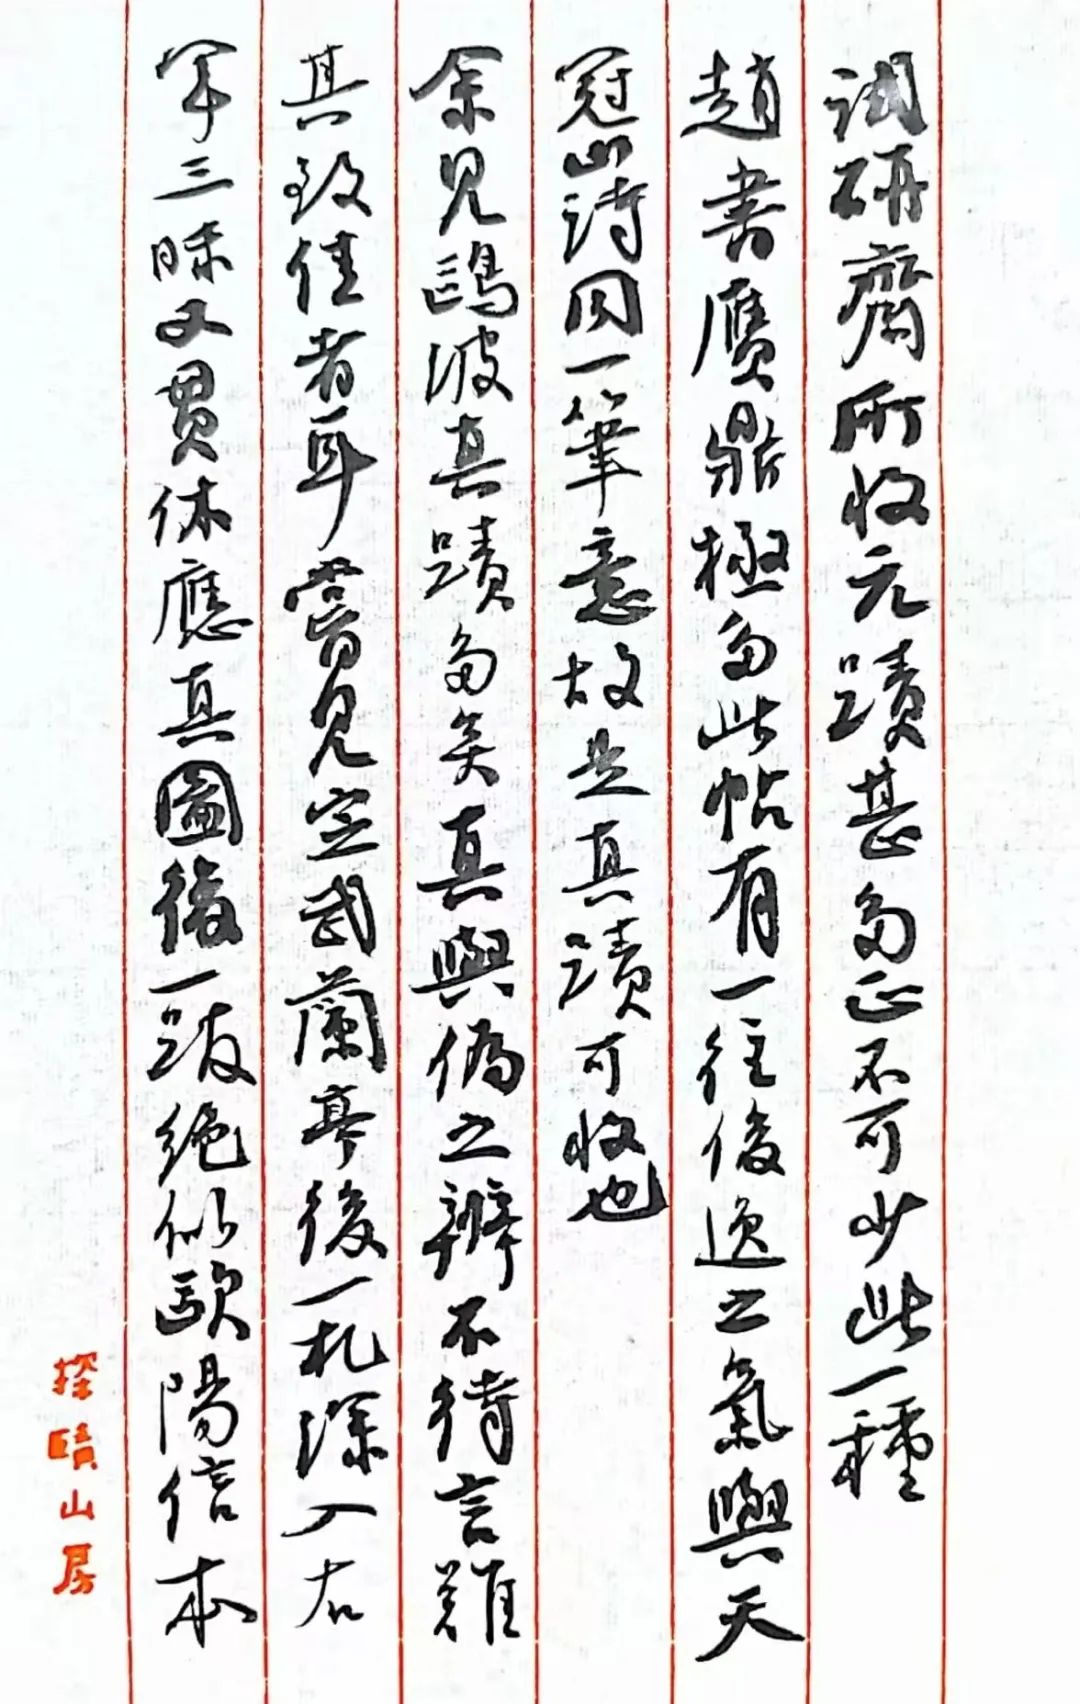 試研齋所收元蹟甚多正不可少此一種
趙書贋鼎極多此帖有一往俊逸之氣與天
冠山詩同一筆意故是真蹟可收也
余見鷗波真蹟多矣真與偽之辨不待言難
其致佳者耳嘗見定武蘭亭後一札深入右
軍三昧又貫休應真圖後一跋絶似歐陽信本
探賾山房